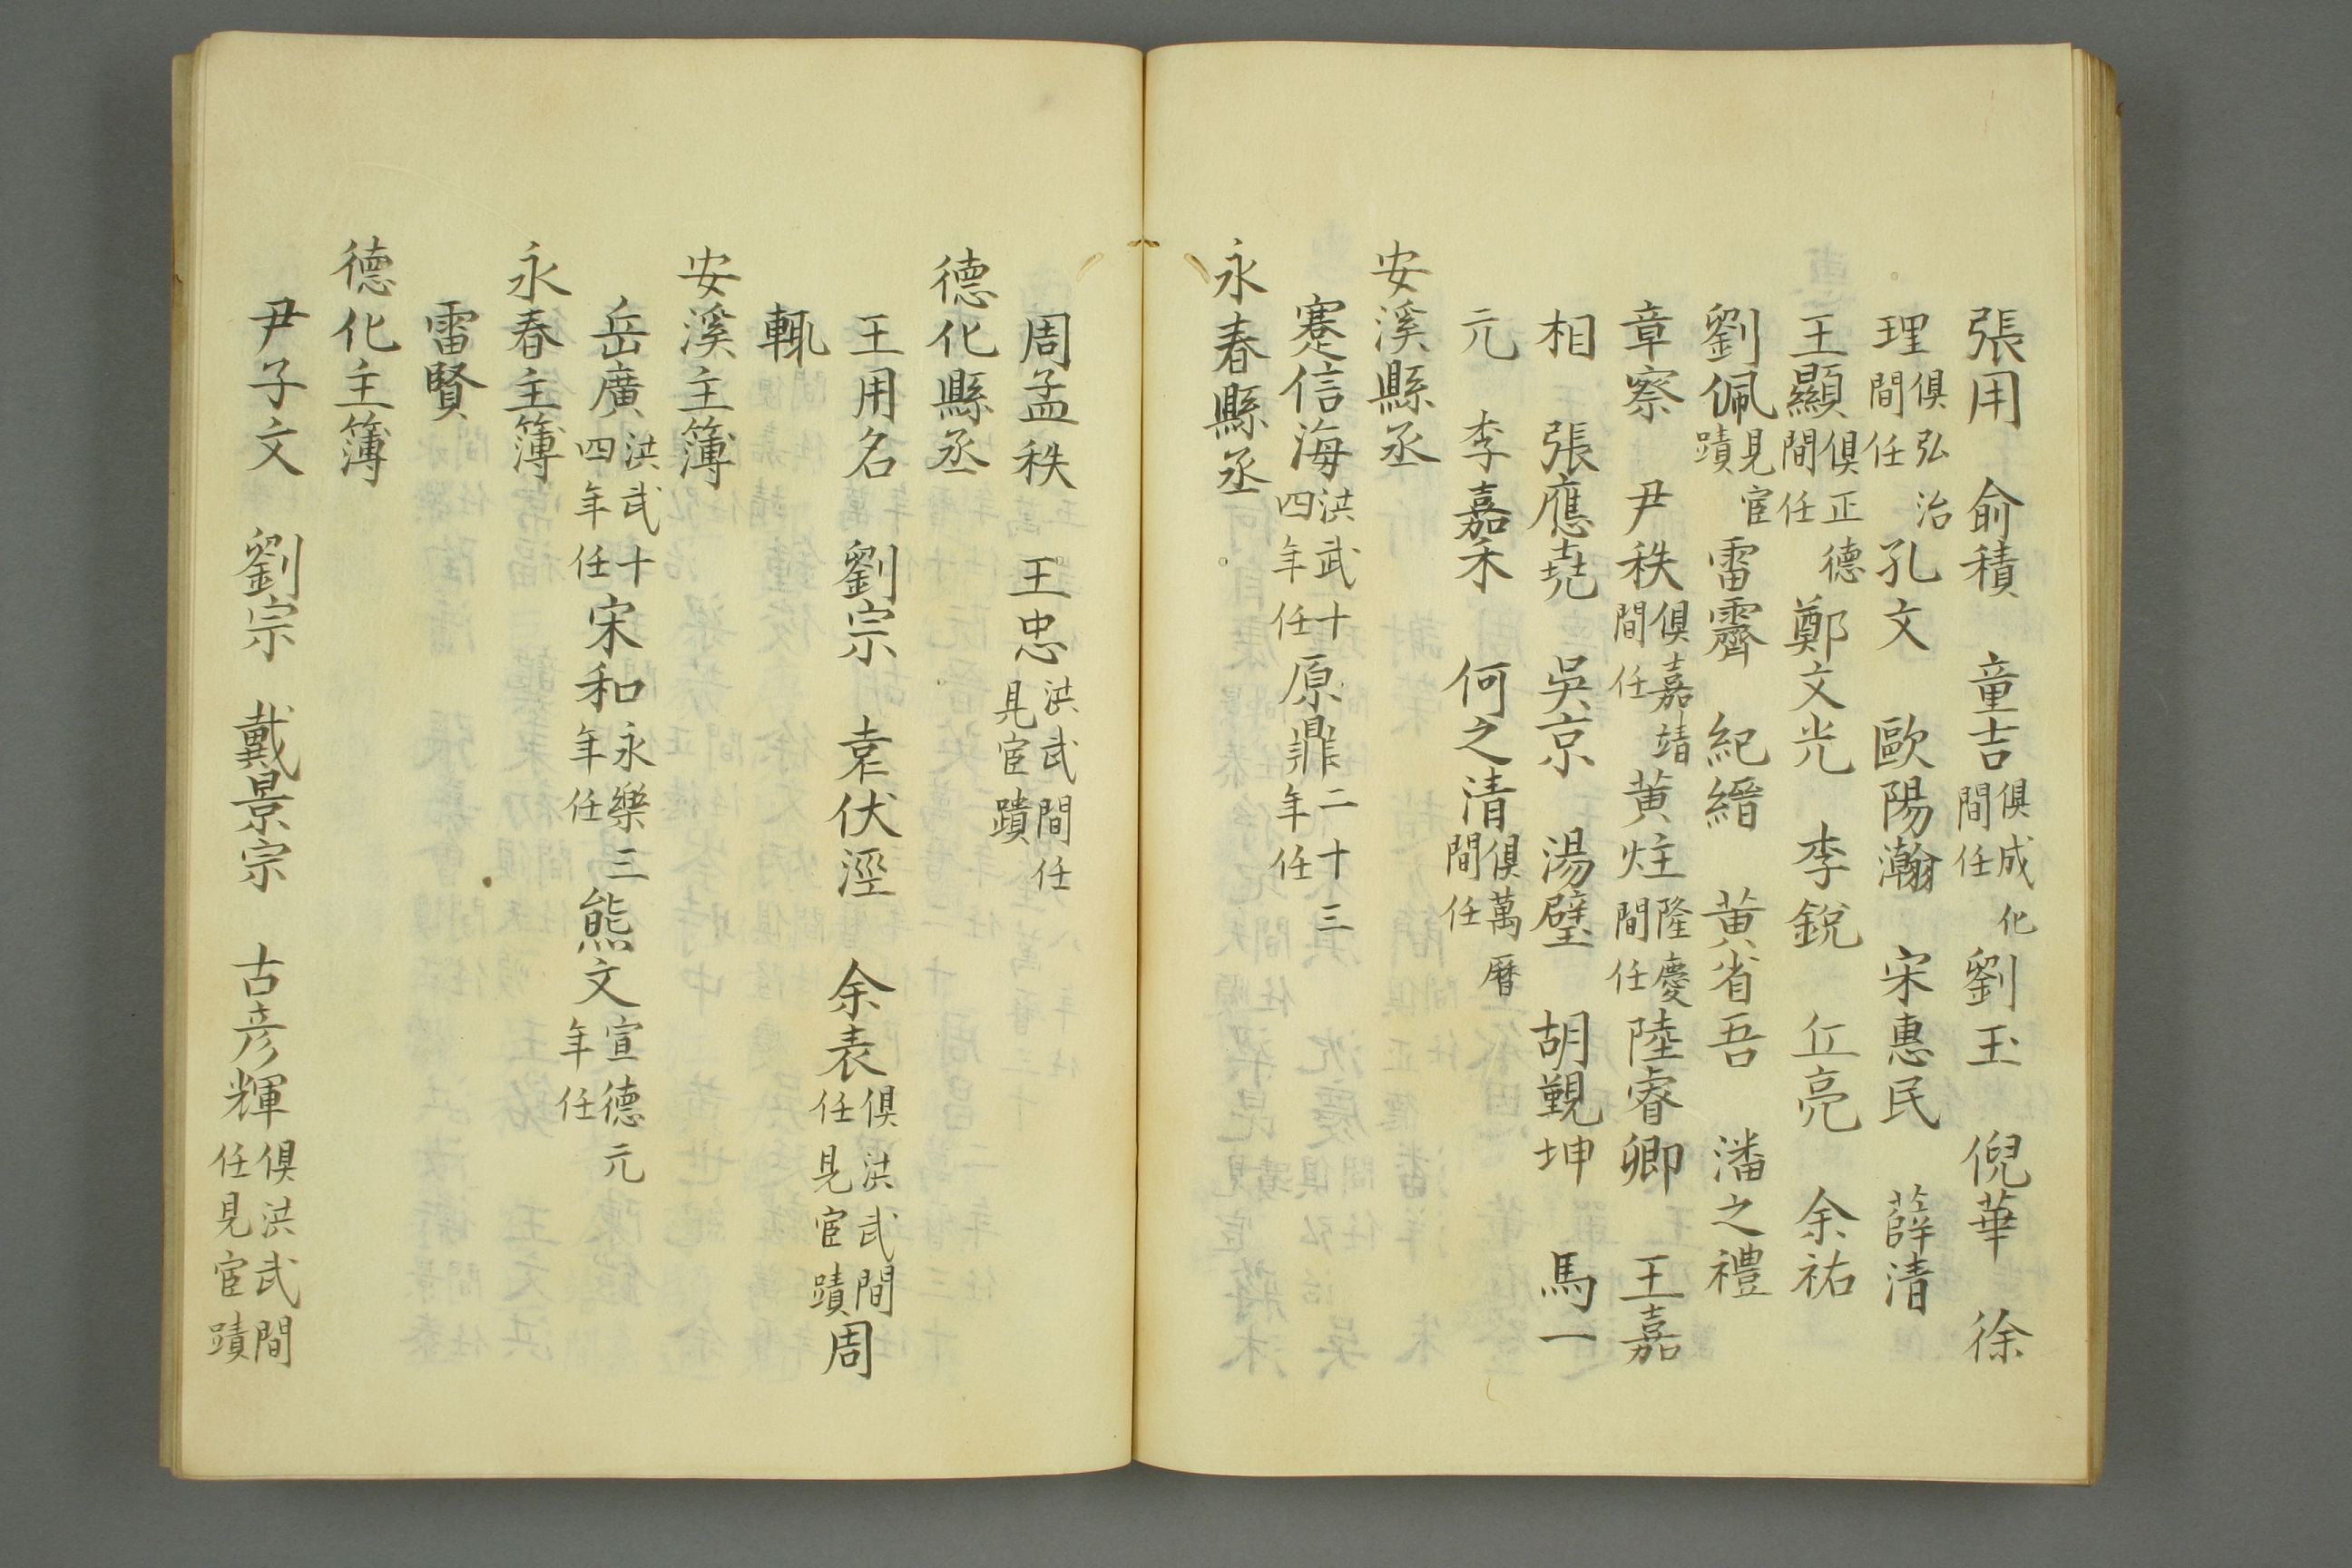 張用 俞積 童吉俱成化間任 劉玉 倪華 徐
理俱弘治間任 孔文 歐陽瀚 宋惠民 薛清
王顯俱正德間任 鄭文光 李銳 丘亮 余祐
劉佩見宦蹟 雷霽 紀縉 黄省吾 潘之禮
章察 尹秩俱嘉靖間任 黄炷隆慶間任 陸睿卿 王嘉
相 張應堯 吳京 湯璧 胡覲坤 馬一
元 李嘉禾 何之清俱萬曆間任
安溪縣丞
蹇信海洪武十四年任 原鼎二十三年任
永春縣丞
周孟秩 王忠洪武間任見宦蹟
德化縣丞
王用名 劉宗 袁伏淫 余表俱洪武間任見宦蹟 周
輒
安溪主簿
岳廣洪武十四年任 宋和永樂三年任 熊文宣德元年任
永春主簿
雷賢
德化主簿
尹子文 劉宗 戴景宗 古彦輝俱洪武間任見宦蹟